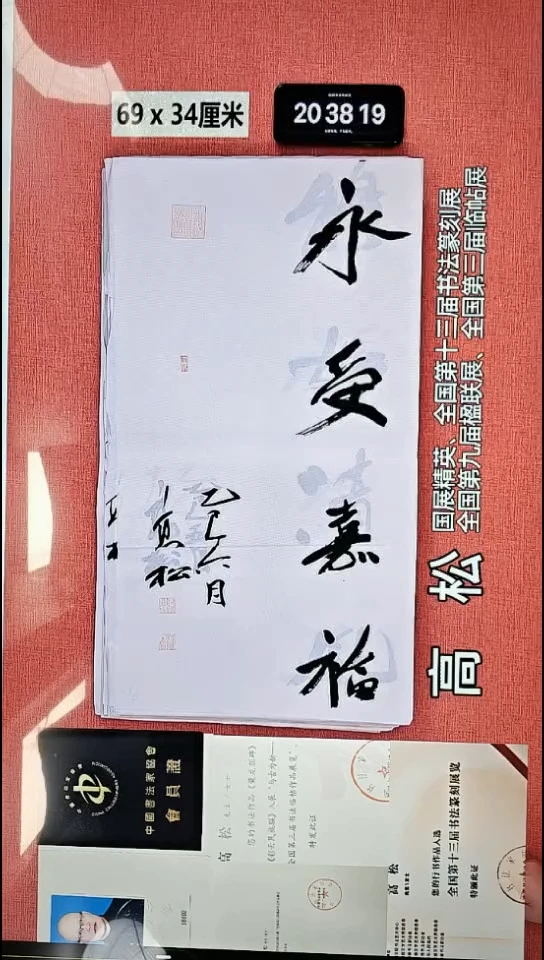 69 x 34厘米
20 38 19
永受嘉福
乙巳六月
高松
高 松
国展精英、全国第十三届书法篆刻展
全国第九届楹联展、全国第三届临帖展
中國書法家協會
會員證
高 松
全国第三届书法临帖作品展览
特发此证
高 松
您的行书作品入选
全国第十三届书法篆刻展览
特颁此证